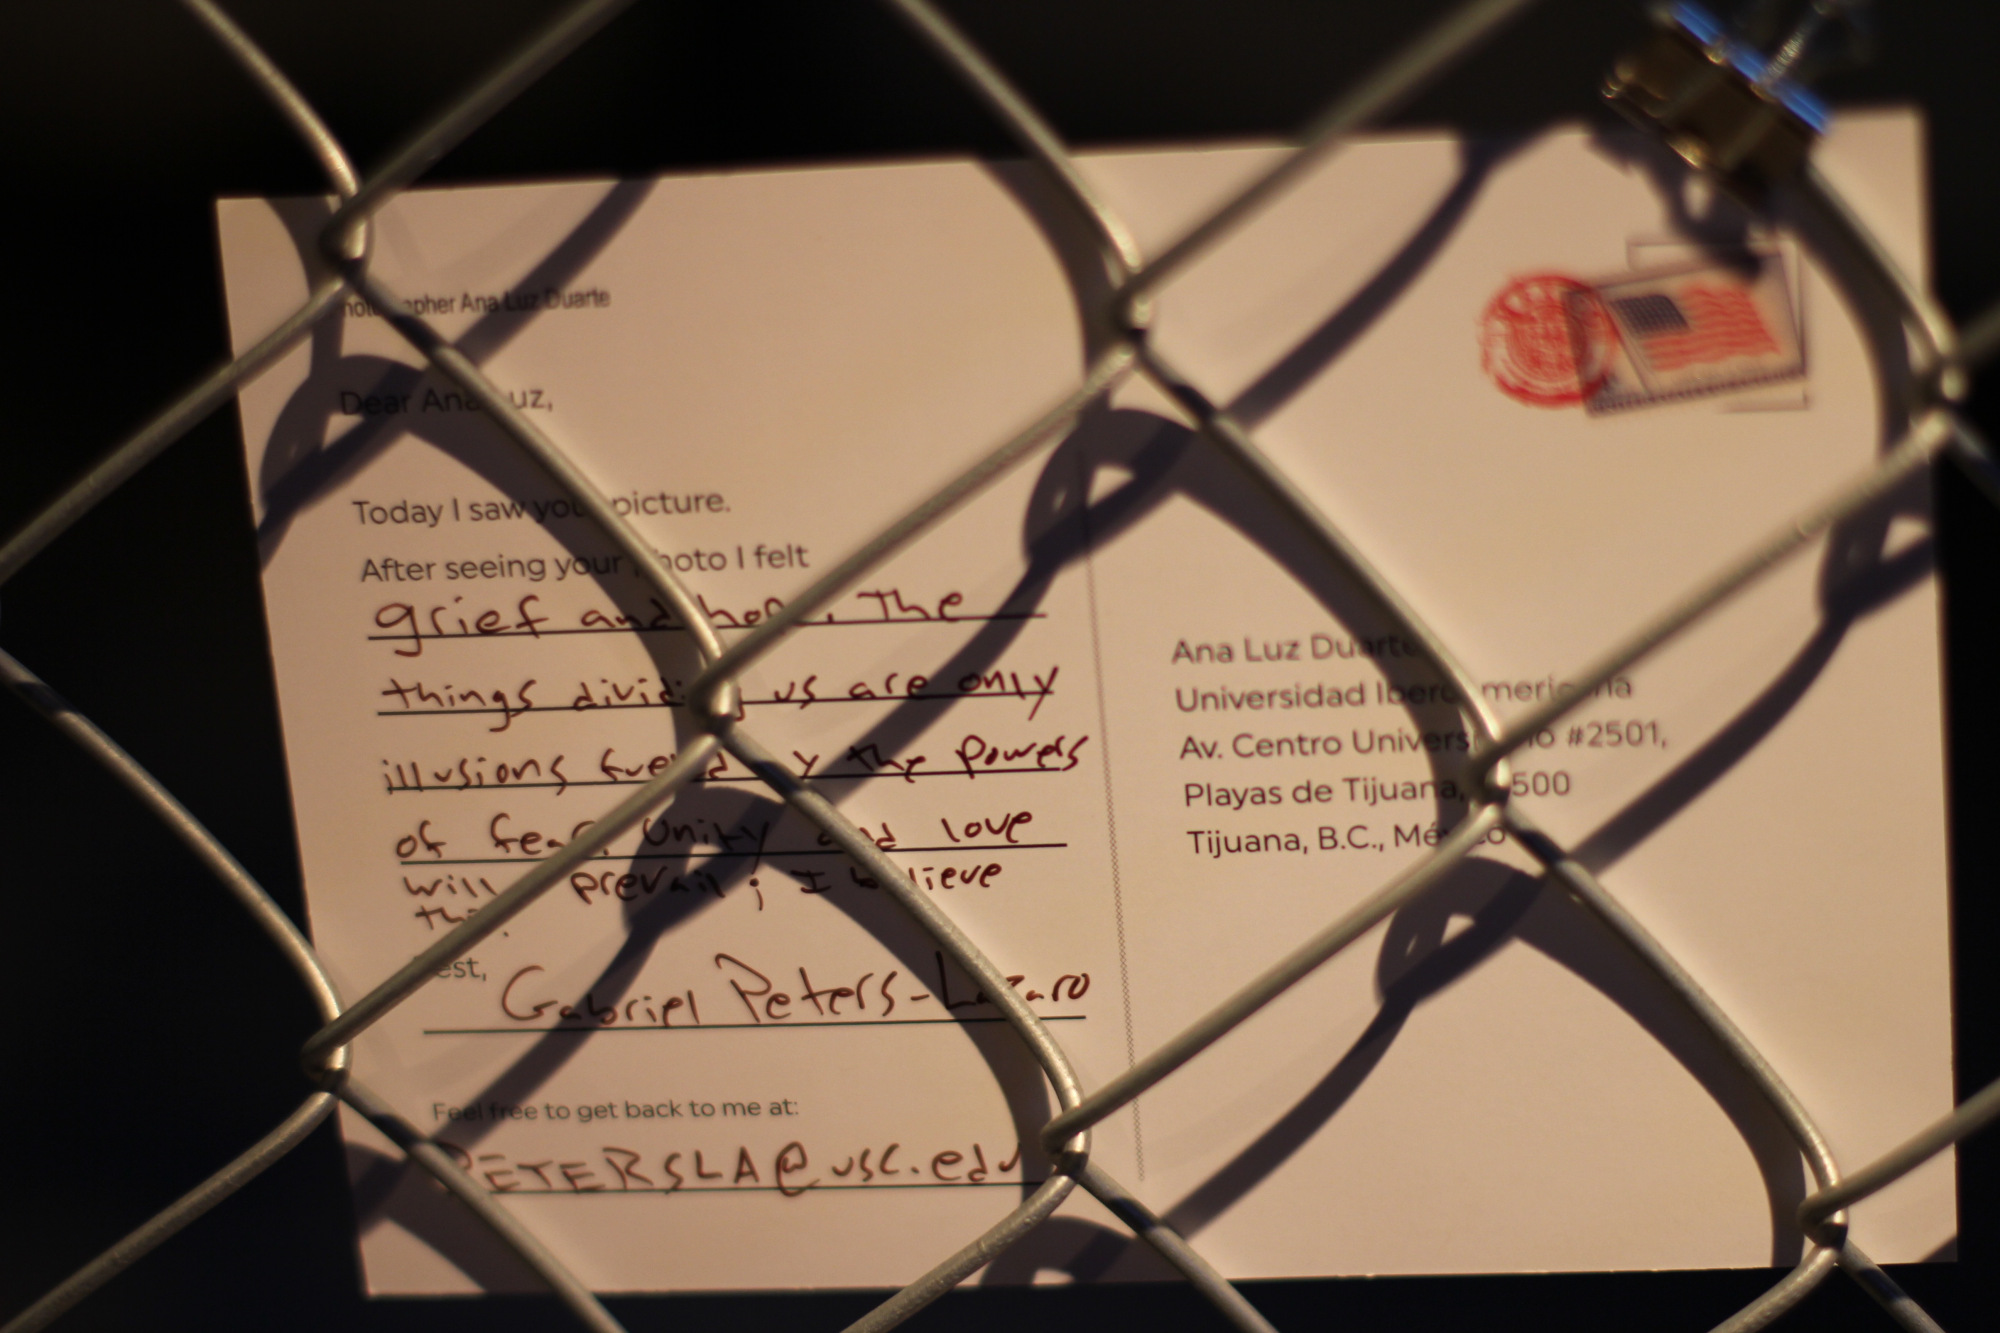 Photographer Ana Luz Duarte
Dear Ana Luz,
Today I saw your picture.
After seeing your photo I felt
grief and hope. The
things dividing us are only
illusions fueled by the powers
of fear. Unity and love
will prevail; I believe
this.
Best, Gabriel Peters-Lazaro
Feel free to get back to me at:
PETERSLA@usc.edu
Ana Luz Duarte
Universidad Iberoamericana
Av. Centro Universitario #2501,
Playas de Tijuana, 500
Tijuana, B.C., México